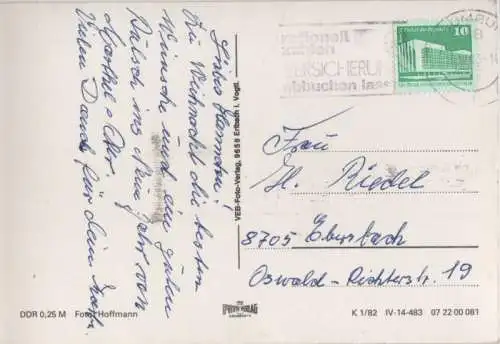 Liebe Hannani!
Zu Weihnacht die besten
Wünsche und ein guten
Rutsch ins Neue Jahr von
Vielen Dank für Dein
VEB Foto-Verlag, 9659 Erlbach i. Vogtl.
rationell
zahlen
VERSICHERU
abbuchen las
10
Frau
H. Riedel
8705 Ebersbach
Oswald-Richterstr. 19
DDR 0,25 M Foto: Hoffmann
K 1/82 IV-14-483 07 22 00 081